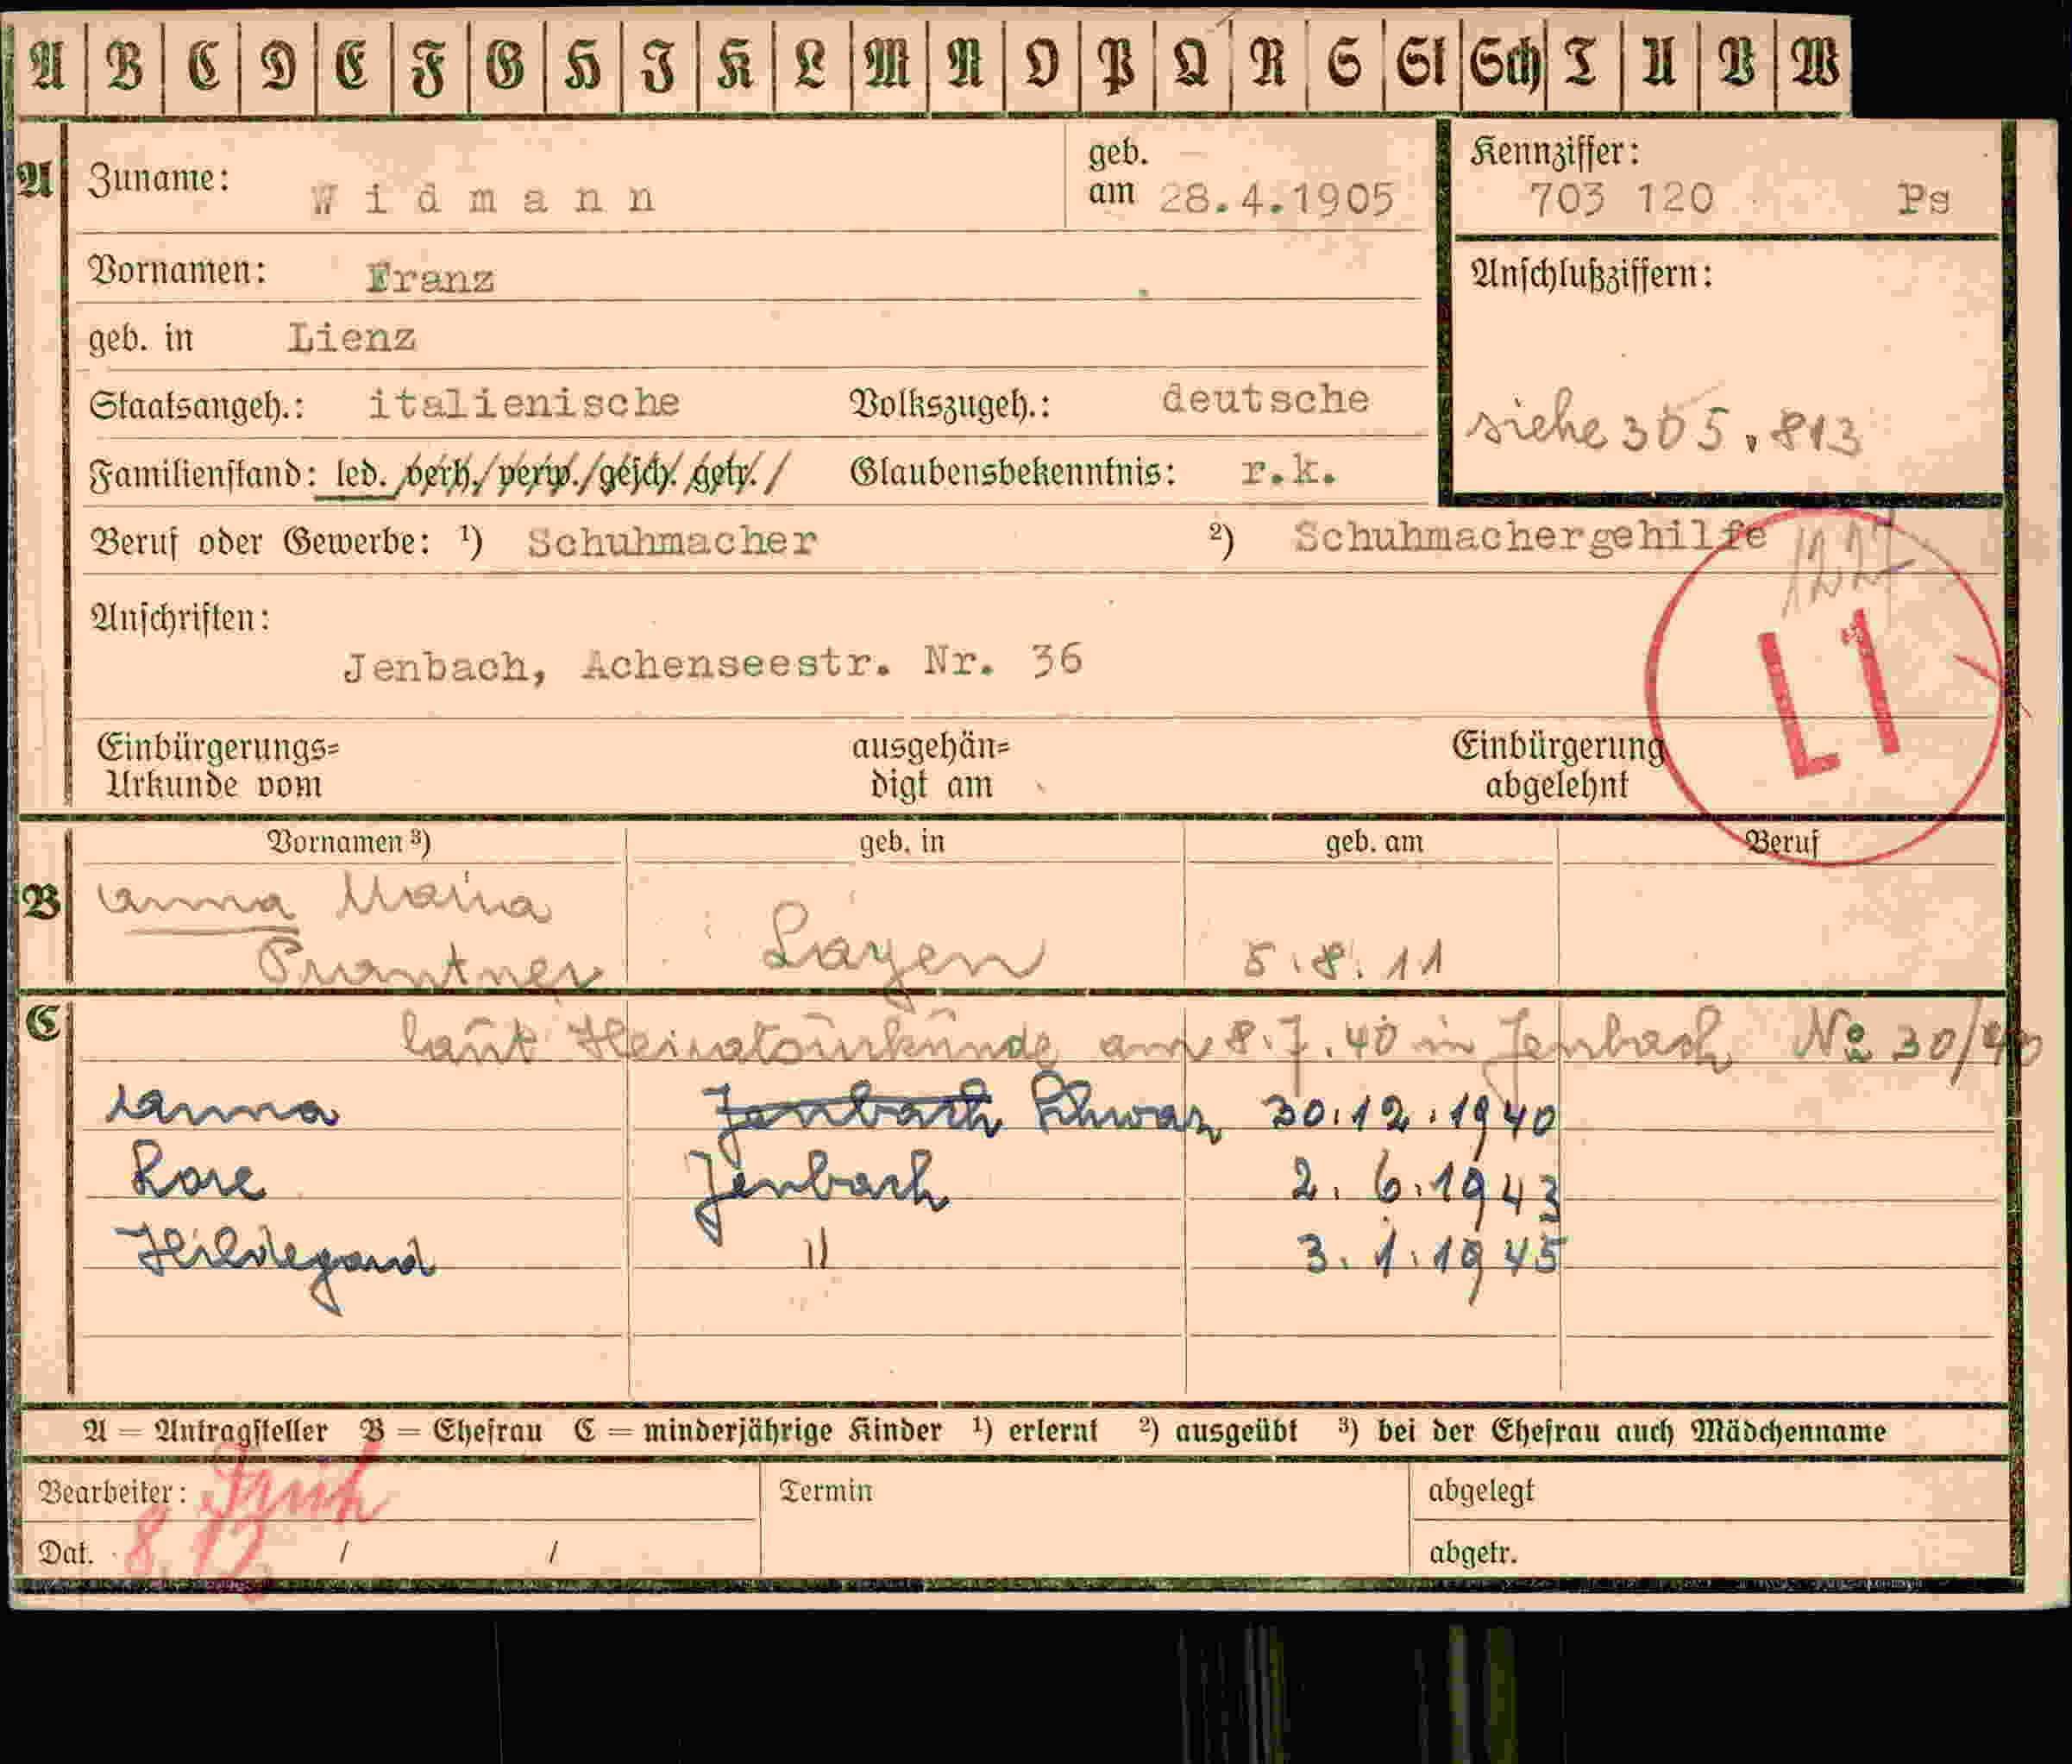 A B C D E F G H I K L M N O P Q R S St Sch T U V W
A Zuname: Widmann geb. am 28.4.1905 Kennziffer: 703 120 Ps
Vornamen: Franz Anschlußziffern:
geb. in Lienz
Staatsangeh.: italienische Volkszugeh.: deutsche siehe 305.813
Familienstand: led. verh./verw./gesch. getr./ Glaubensbekenntnis: r.k.
Beruf oder Gewerbe: ¹) Schuhmacher ²) Schuhmachergehilfe
Anschriften:
Jenbach, Achenseestr. Nr. 36
L1
Einbürgerungs= ausgehän= Einbürgerung
Urkunde vom digt am abgelehnt
Vornamen ³) geb. in geb. am Beruf
B Anna Maria
Prantner Layen 5.8.11
C laut Heiratsurkunde am 8.7.40 in Jenbach No 30/40
Anna Jenbach Schwaz 30.12.1940
Rose Jenbach 2.6.1943
Hildegard " 3.1.1945
A = Antragsteller B = Ehefrau C = minderjährige Kinder ¹) erlernt ²) ausgeübt ³) bei der Ehefrau auch Mädchenname
Bearbeiter: Termin abgelegt
Dat. 8. 12 / / abgetr.